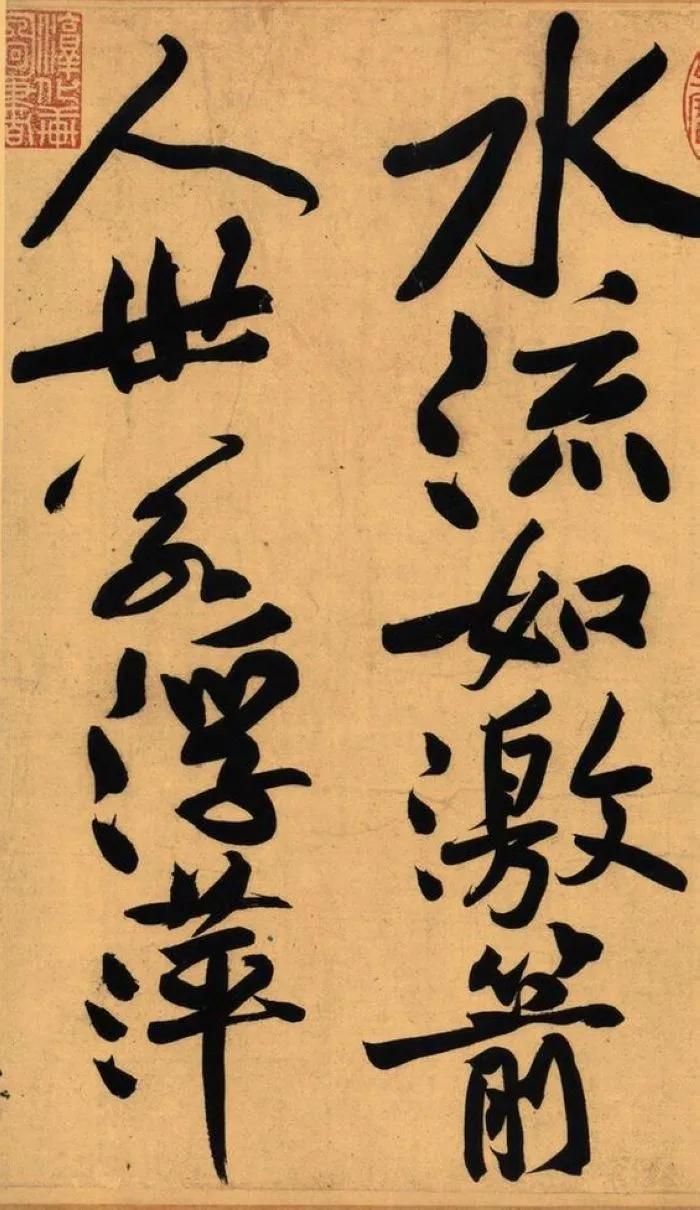 水流如激箭
人世若浮萍